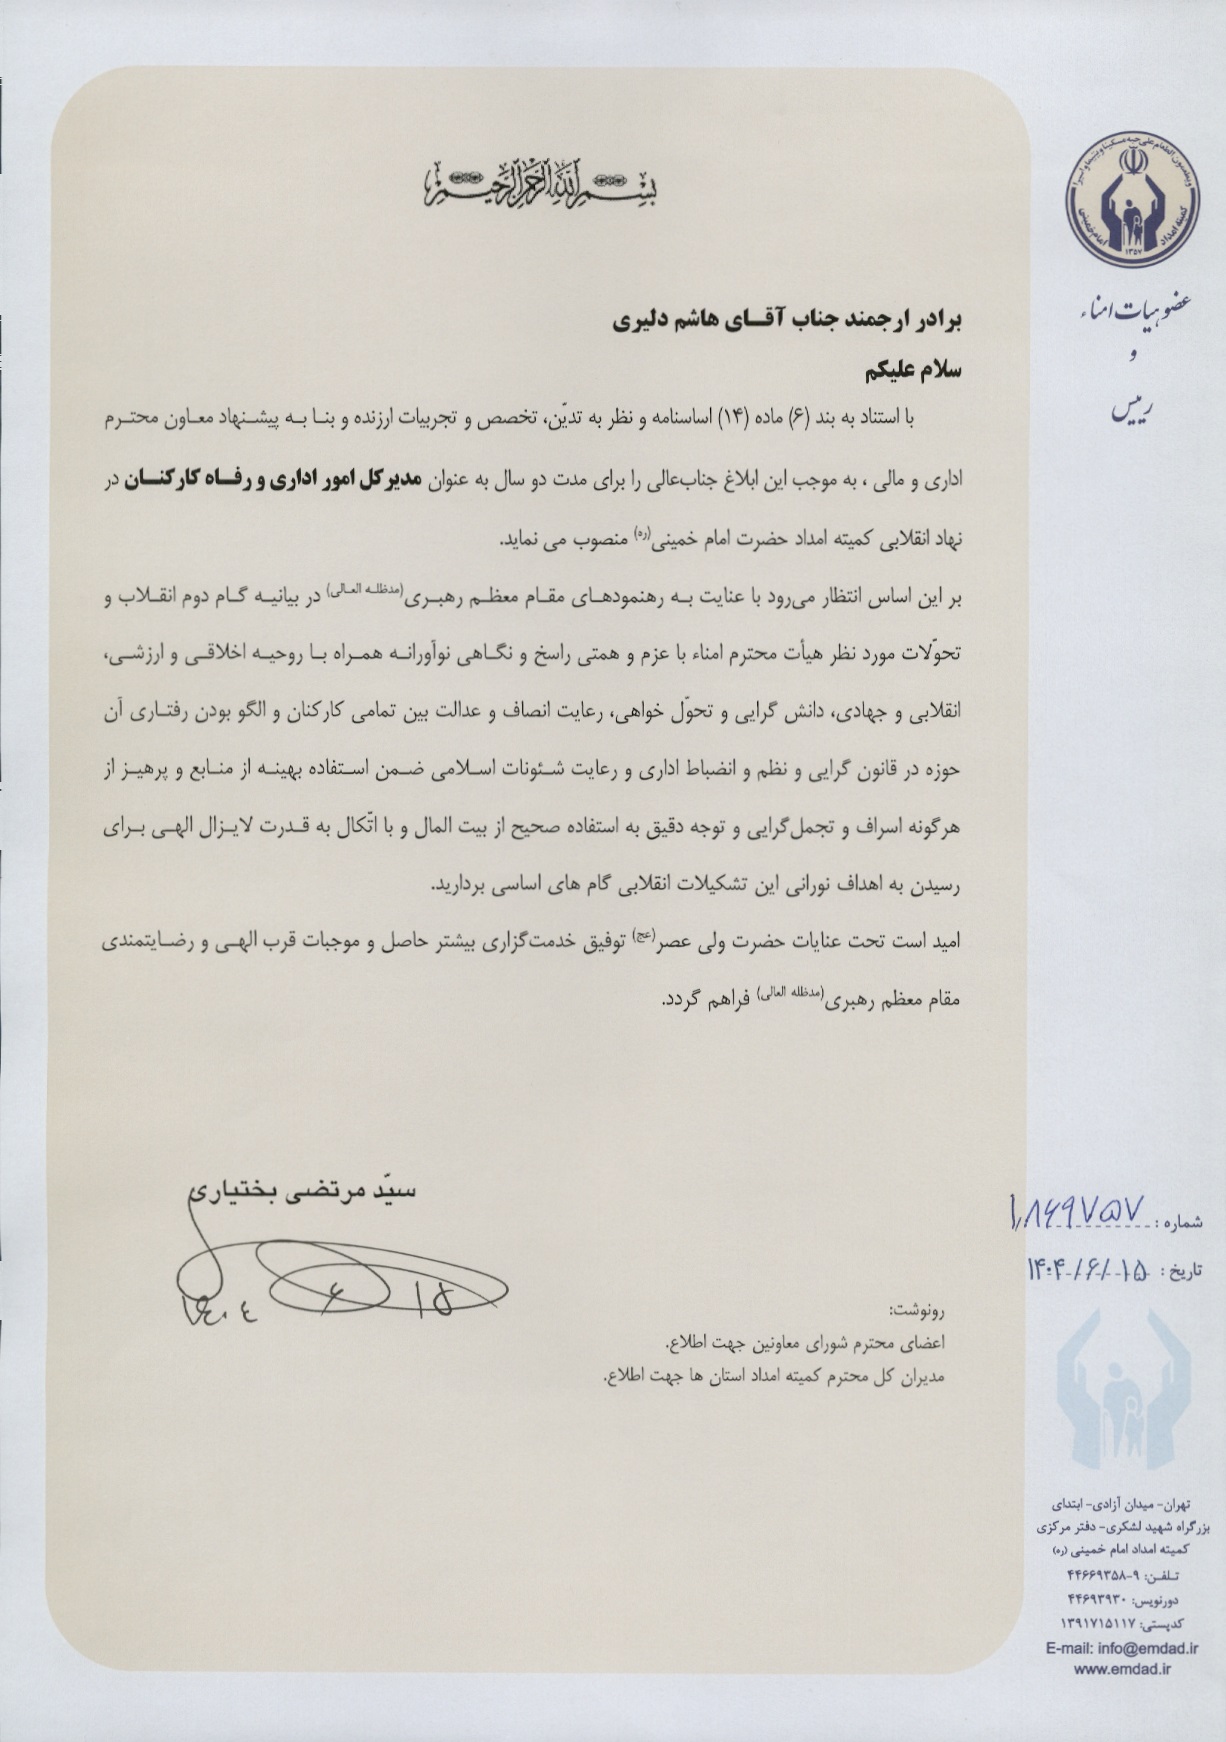 بسم الله الرحمن الرحیم
کمیته امداد امام خمینی
۱۳۵۷
عضو هیات امناء
و
رییس
برادر ارجمند جناب آقـای هاشم دلیری
سلام علیکم
با استناد به بند (۶) ماده (۱۴) اساسنامه و نظر به تدیّن، تخصص و تجربیات ارزنده و بنا به پیشنهاد معاون محترم
اداری و مالی ، به موجب این ابلاغ جناب‌عالی را برای مدت دو سال به عنوان مدیرکل امور اداری و رفـاه کارکنـان در
نهاد انقلابی کمیته امداد حضرت امام خمینی(ره) منصوب می نماید.
بر این اساس انتظار می‌رود با عنایت به رهنمودهای مقام معظم رهبری(مدظله العالی) در بیانیه گام دوم انقلاب و
تحوّلات مورد نظر هیأت محترم امناء با عزم و همتی راسخ و نگاهی نوآورانه همراه با روحیه اخلاقی و ارزشی،
انقلابی و جهادی، دانش گرایی و تحوّل خواهی، رعایت انصاف و عدالت بین تمامی کارکنان و الگو بودن رفتاری آن
حوزه در قانون گرایی و نظم و انضباط اداری و رعایت شئونات اسلامی ضمن استفاده بهینه از منابع و پرهیز از
هرگونه اسراف و تجمل‌گرایی و توجه دقیق به استفاده صحیح از بیت المال و با اتّکال به قدرت لایزال الهی برای
رسیدن به اهداف نورانی این تشکیلات انقلابی گام های اساسی بردارید.
امید است تحت عنایات حضرت ولی عصر(عج) توفیق خدمت‌گزاری بیشتر حاصل و موجبات قرب الهی و رضایتمندی
مقام معظم رهبری(مدظله العالی) فراهم گردد.
سیّد مرتضی بختیاری
۱۴۰۴ ۶ ۱۵
شماره : ۱,۸۶۹۷۵۷
تاریخ : ۱۴۰۴/۶/۱۵
رونوشت:
اعضای محترم شورای معاونین جهت اطلاع.
مدیران کل محترم کمیته امداد استان ها جهت اطلاع.
تهران- میدان آزادی- ابتدای
بزرگراه شهید لشکری- دفتر مرکزی
کمیته امداد امام خمینی (ره)
تـلفـن: ۹-۴۴۶۶۹۳۵۸
دورنویس: ۴۴۶۹۳۹۳۰
کدپستی: ۱۳۹۱۷۱۵۱۱۷
E-mail: info@emdad.ir
www.emdad.ir